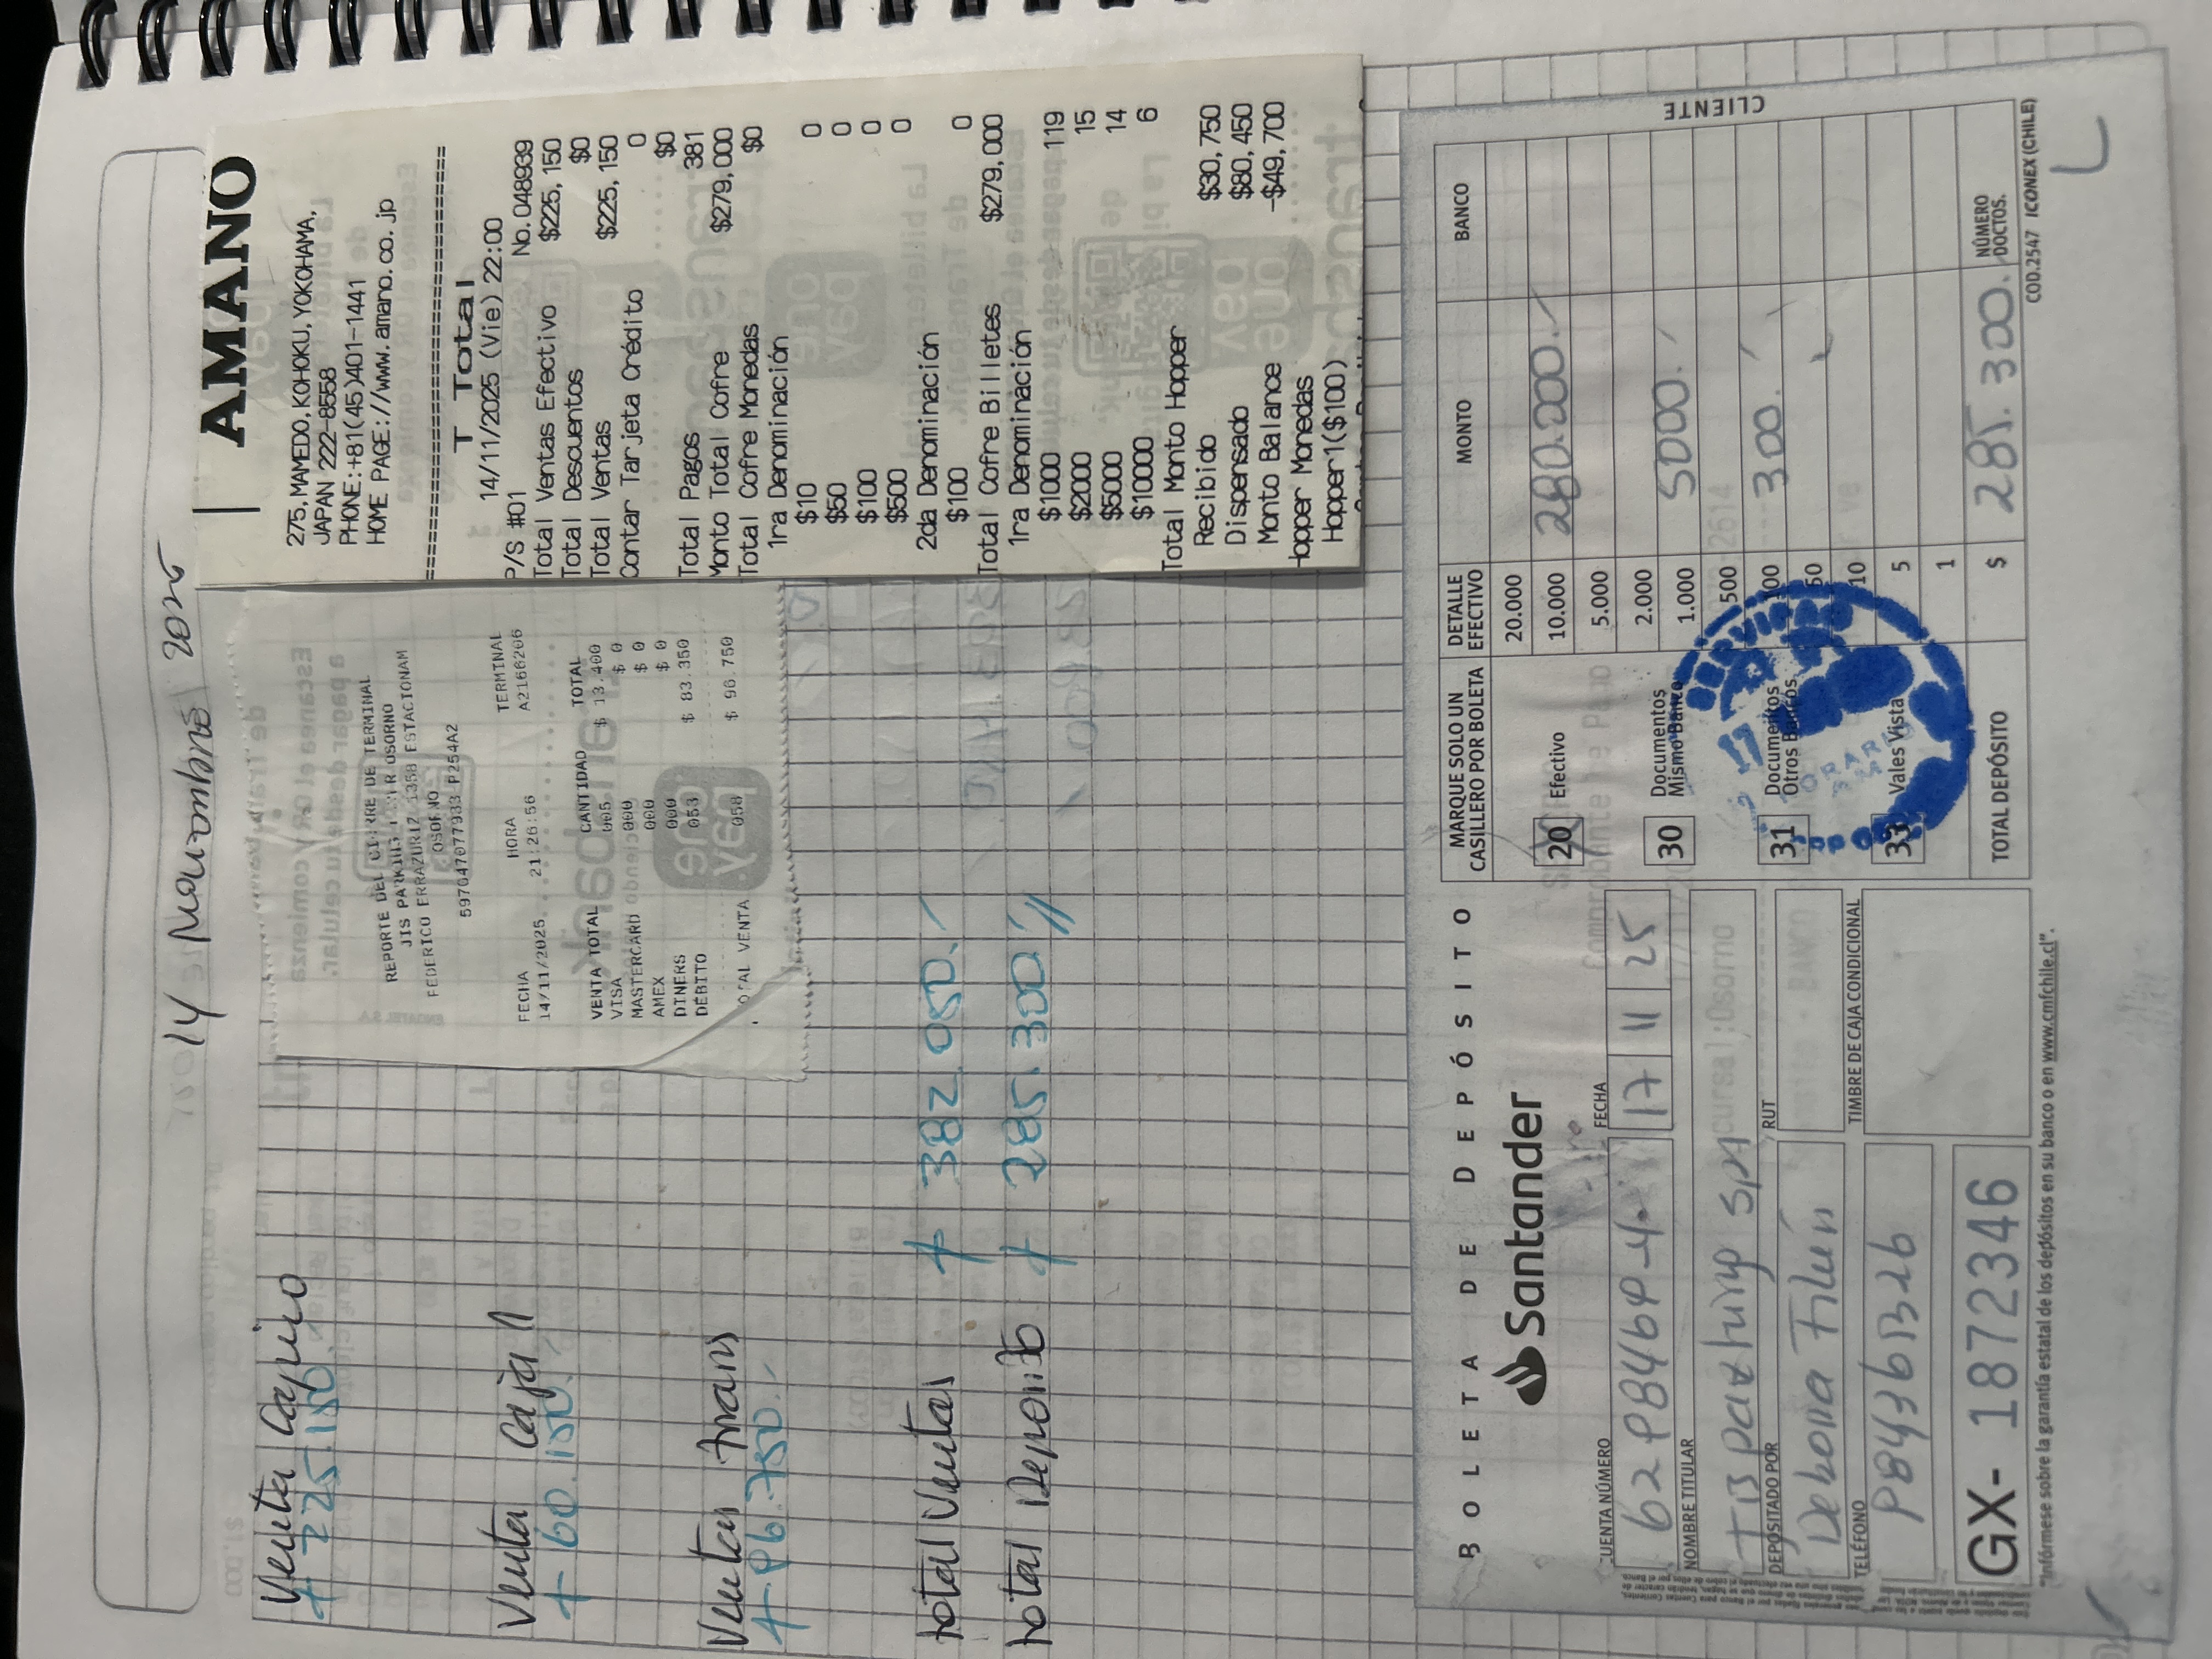 14 Noviembre 2025
Venta Cajero
+ 225.150
Venta Caja 11
+ 60.150.-
Ventas trans
+ 96.750.-
total Ventas + 382.050.-
total Deposito + 285.300 //
REPORTE DEL CIERRE DE TERMINAL
JIS PARKING OSORNO
FEDERICO ERRAZURIZ 1358 ESTACIONAM
OSORNO
597047077933 P254A2
FECHA HORA TERMINAL
14/11/2025 21:26:56 A2166206
CANTIDAD TOTAL
VENTA TOTAL 005 $ 13.400
VISA 000 $ 0
MASTERCARD 000 $ 0
AMEX 000 $ 0
DINERS 053 $ 83.350
DÉBITO
TOTAL VENTA 058 $ 96.750
AMANO
275, MAMEDO, KOHOKU, YOKOHAMA,
JAPAN 222-8558
PHONE:+81(45)401-1441
HOME PAGE://www.amano.co.jp
T Total
14/11/2025 (Vie) 22:00
P/S #01 No.048939
Total Ventas Efectivo $225,150
Total Descuentos $0
Total Ventas $225,150
Contar Tarjeta Crédito 0
$0
Total Pagos 381
Monto Total Cofre $279,000
Total Cofre Monedas $0
1ra Denominación
$10 0
$50 0
$100 0
$500 0
2da Denominación
$100 0
Total Cofre Billetes $279,000
1ra Denominación
$1000 119
$2000 15
$5000 14
$10000 6
Total Monto Hopper
Recibido $30,750
Dispensado $80,450
Monto Balance -$49,700
Hopper Monedas
Hopper1($100)
BOLETA DE DEPÓSITO
Santander
CUENTA NÚMERO FECHA
6298469-4 17 11 25
NOMBRE TITULAR
JIS parking SPA
DEPOSITADO POR RUT
Debora Filún
TELÉFONO TIMBRE DE CAJA CONDICIONAL
984361326
GX- 1872346
MARQUE SOLO UN CASILLERO POR BOLETA
DETALLE EFECTIVO MONTO BANCO
20 Efectivo
30 Documentos Mismo Banco
31 Documentos Otros Bancos
33 Vales Vista
20.000
10.000 280.000.-
5.000
2.000
1.000 5000.-
500
100 300.-
50
10
5
1
TOTAL DEPÓSITO $ 285.300.- NÚMERO DOCTOS.
CLIENTE
COD.2547 ICONEX (CHILE)
"Infórmese sobre la garantía estatal de los depósitos en su banco o en www.cmfchile.cl".